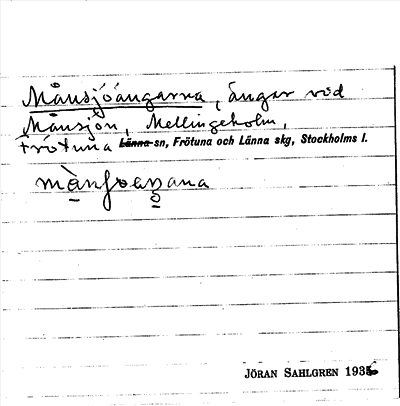 Månsjöängarna, ängar vid
Månsjön, Mellingeholm,
Frötuna Länna sn, Frötuna och Länna skg, Stockholms l.
JÖRAN SAHLGREN 1935